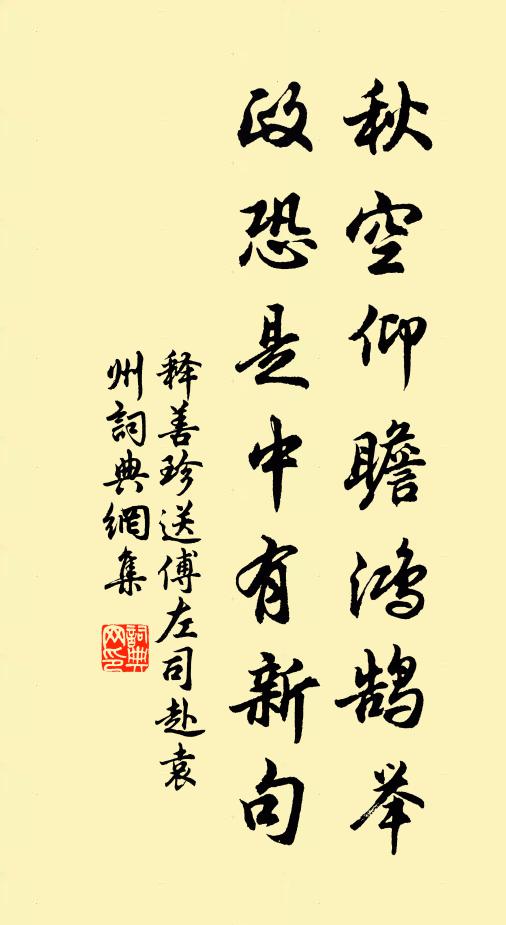 秋空仰瞻鸿鹄举
政恐是中有新句
释善珍送傅左司赴袁
州詞典網集
詞典网印